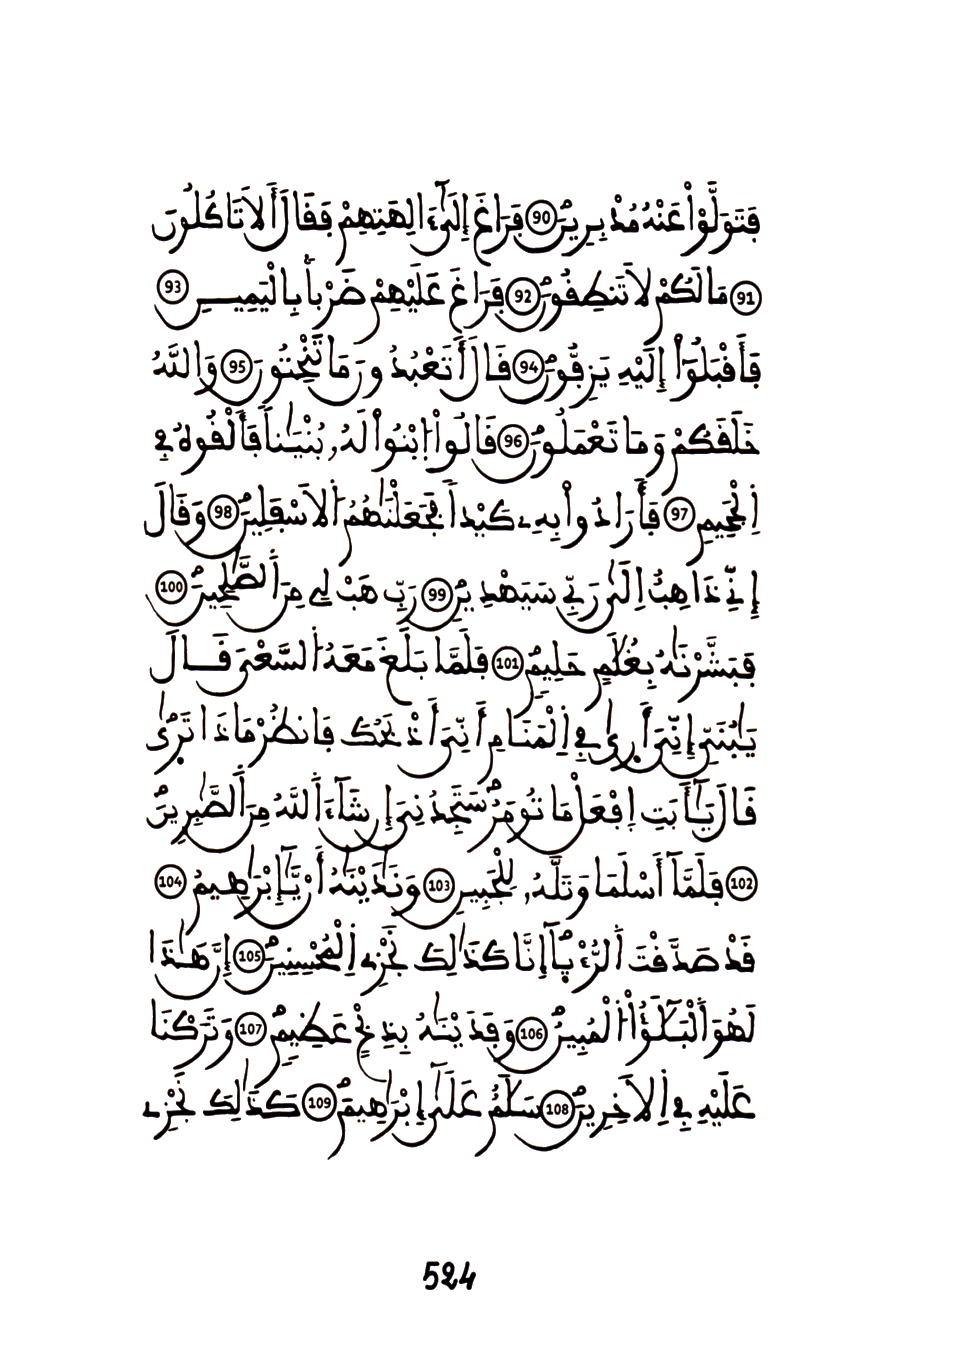 فَتَوَلَّوْاْ عَنْهُ مُدْبِرِينَ 90 فَرَاغَ إِلَىٰٓ ءَالِهَتِهِمْ فَقَالَ أَلَا تَاكُلُونَ
91 مَا لَكُمْ لَا تَنطِقُونَ 92 فَرَاغَ عَلَيْهِمْ ضَرْباَۢ بِالْيَمِينِ 93
فَأَقْبَلُوٓاْ إِلَيْهِ يَزِفُّونَ 94 قَالَ أَتَعْبُدُونَ مَا تَنْحِتُونَ 95 وَاللَّهُ
خَلَقَكُمْ وَمَا تَعْمَلُونَ 96 قَالُواْ اُ۪بْنُواْ لَهُۥ بُنْيَٰناً فَأَلْقُوهُ فِے
اِ۬لْجَحِيمِ 97 فَأَرَادُواْ بِهِۦ كَيْداً فَجَعَلْنَٰهُمُ اُ۬لَاسْفَلِينَ 98 وَقَالَ
إِنِّے ذَاهِبٌ اِلَىٰ رَبِّے سَيَهْدِينِ 99 رَبِّ هَبْ لِے مِنَ اَ۬لصَّٰلِحِينَ 100
فَبَشَّرْنَٰهُ بِغُلَٰمٍ حَلِيمٍ 101 فَلَمَّا بَلَغَ مَعَهُ اُ۬لسَّعْىَ قَالَ
يَٰبُنَىِّ إِنِّىَ أَر۪ىٰ فِے اِ۬لْمَنَامِ أَنِّىَ أَذْبَحُكَ فَانظُرْ مَاذَا تَر۪ىٰ
قَالَ يَٰٓأَبَتِ اِ۪فْعَلْ مَا تُومَرُ سَتَجِدُنِىَ إِن شَآءَ اَ۬للَّهُ مِنَ اَ۬لصَّٰبِرِينَ
102 فَلَمَّآ أَسْلَمَا وَتَلَّهُۥ لِلْجَبِينِ 103 وَنَٰدَيْنَٰهُ أَنْ يَّٰٓإِبْرَٰهِيمُ 104
قَدْ صَدَّقْتَ اَ۬لرُّءْي۪آ إِنَّا كَذَٰلِكَ نَجْزِے اِ۬لْمُحْسِنِينَ 105 إِنَّ هَٰذَا
لَهُوَ اَ۬لْبَلَٰٓؤُاْ اُ۬لْمُبِينُ 106 وَفَدَيْنَٰهُ بِذِبْحٍ عَظِيمٍ 107 وَتَرَكْنَا
عَلَيْهِ فِے اِ۬لَاخِرِينَ 108 سَلَٰمٌ عَلَىٰٓ إِبْرَٰهِيمَ 109 كَذَٰلِكَ نَجْزِے
524